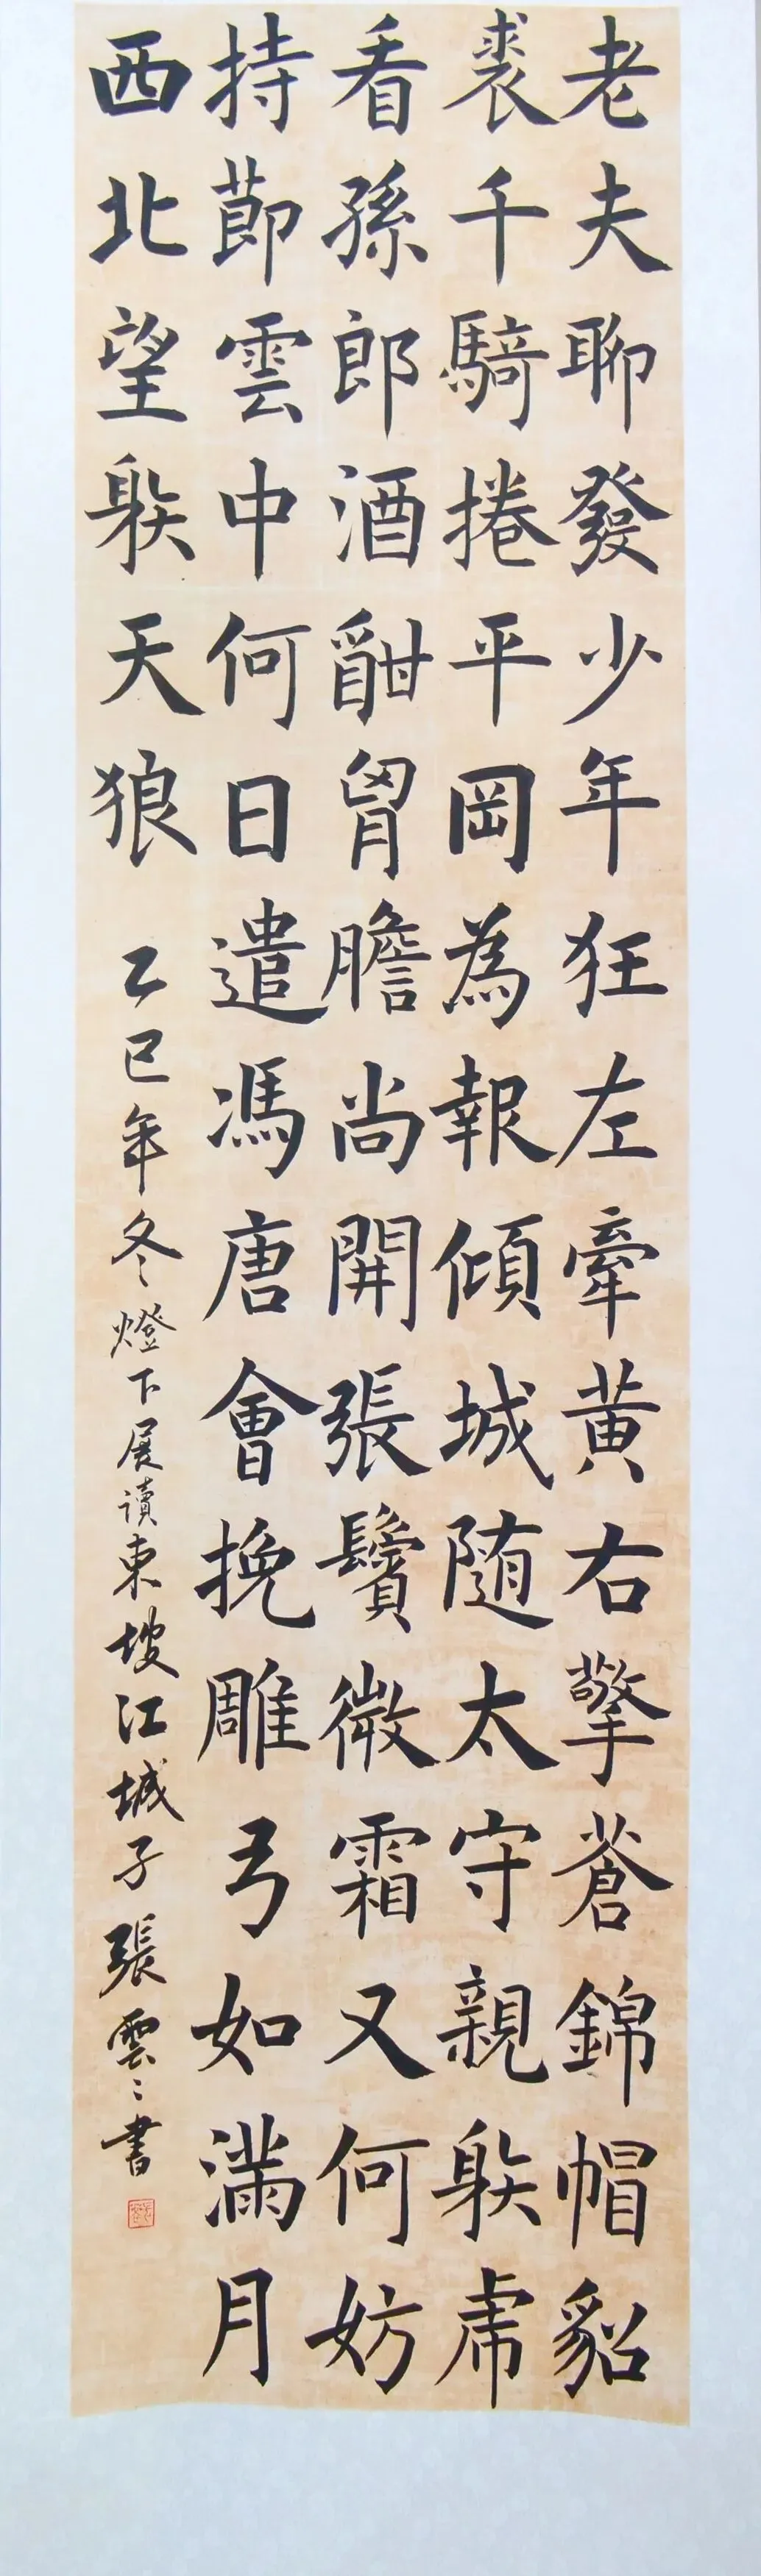 老夫聊發少年狂左牽黄右擎蒼錦帽貂
裘千騎捲平岡為報傾城随太守親䠶虎
看孫郎酒酣胷膽尚開張鬢微霜又何妨
持莭雲中何日遣馮唐會挽雕弓如滿月
西北望䠶天狼 乙巳年冬燈下展讀東坡江城子張雲〻書